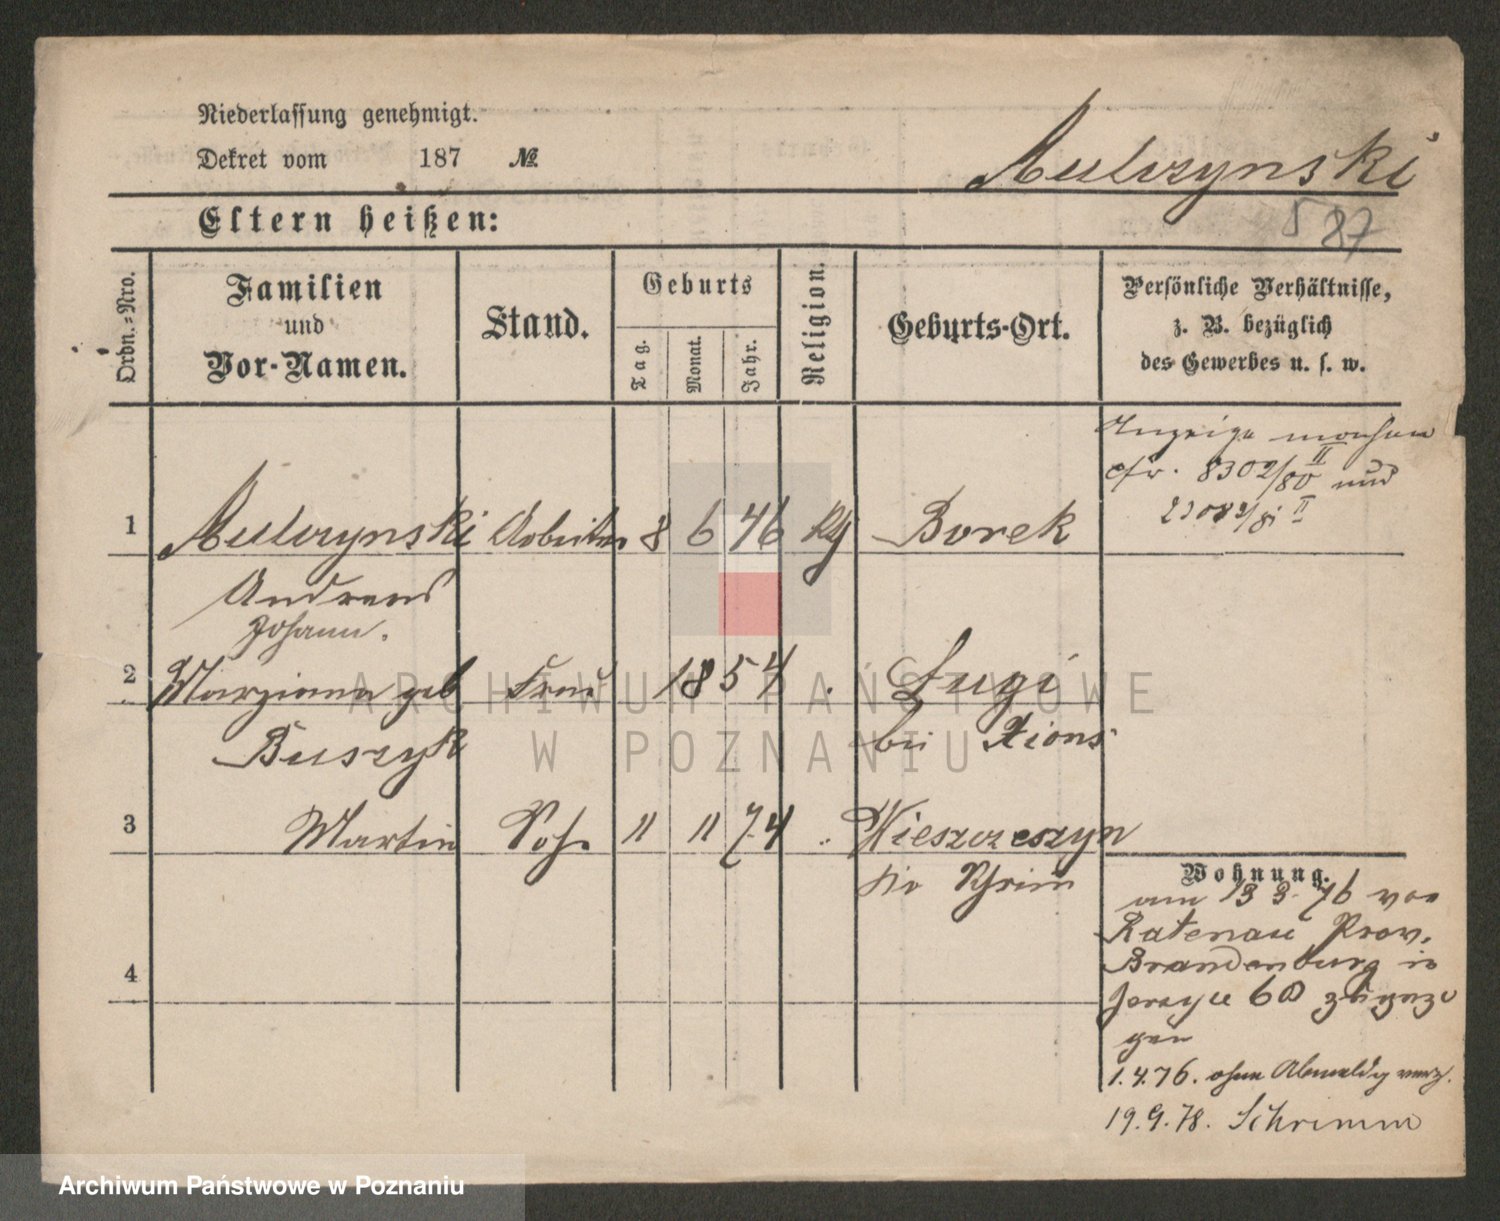 Niederlassung genehmigt.
Dekret vom 187 №
Aulczynski
587
Eltern heißen:
Ordn.-Nro.
Familien
und
Vor-Namen.
Stand.
Geburts
Tag.
Monat.
Jahr.
Religion.
Geburts-Ort.
Persönliche Verhältnisse,
z. B. bezüglich
des Gewerbes u. s. w.
Anzeige
cfr. 8302/80 II und
1 Aulczynski Arbeiter 8 6 46 Kth Borek
Andreas
Johann.
2 Marianna geb Frau 1854 Lugi
Buszyk bei Xions
3 Martin Sohn 11 11 74 Wieszczeszyn
Schrim
4
Wohnung.
am 13 3. 76 von
Ratenau Prov.
Brandenburg in
Jerzyce 60 zugezo
gen
1.4.76. ohne Abmeldg verz.
19.9.78. Schrimm
ARCHIWUM PAŃSTWOWE
W POZNANIU
Archiwum Państwowe w Poznaniu